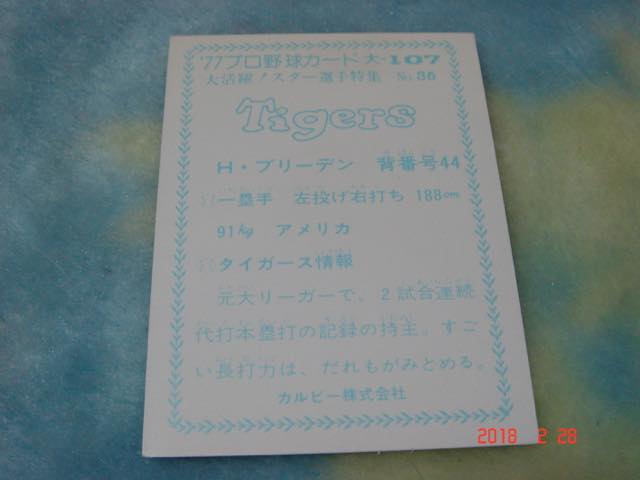 '77プロ野球カード 大-107
大活躍!スター選手特集 No.36
Tigers
H・ブリーデン 背番号44
一塁手 左投げ右打ち 188cm
91kg アメリカ
タイガース情報
元大リーガーで、2試合連続
代打本塁打の記録の持主。すご
い長打力は、だれもがみとめる。
カルビー株式会社
2018 2 28